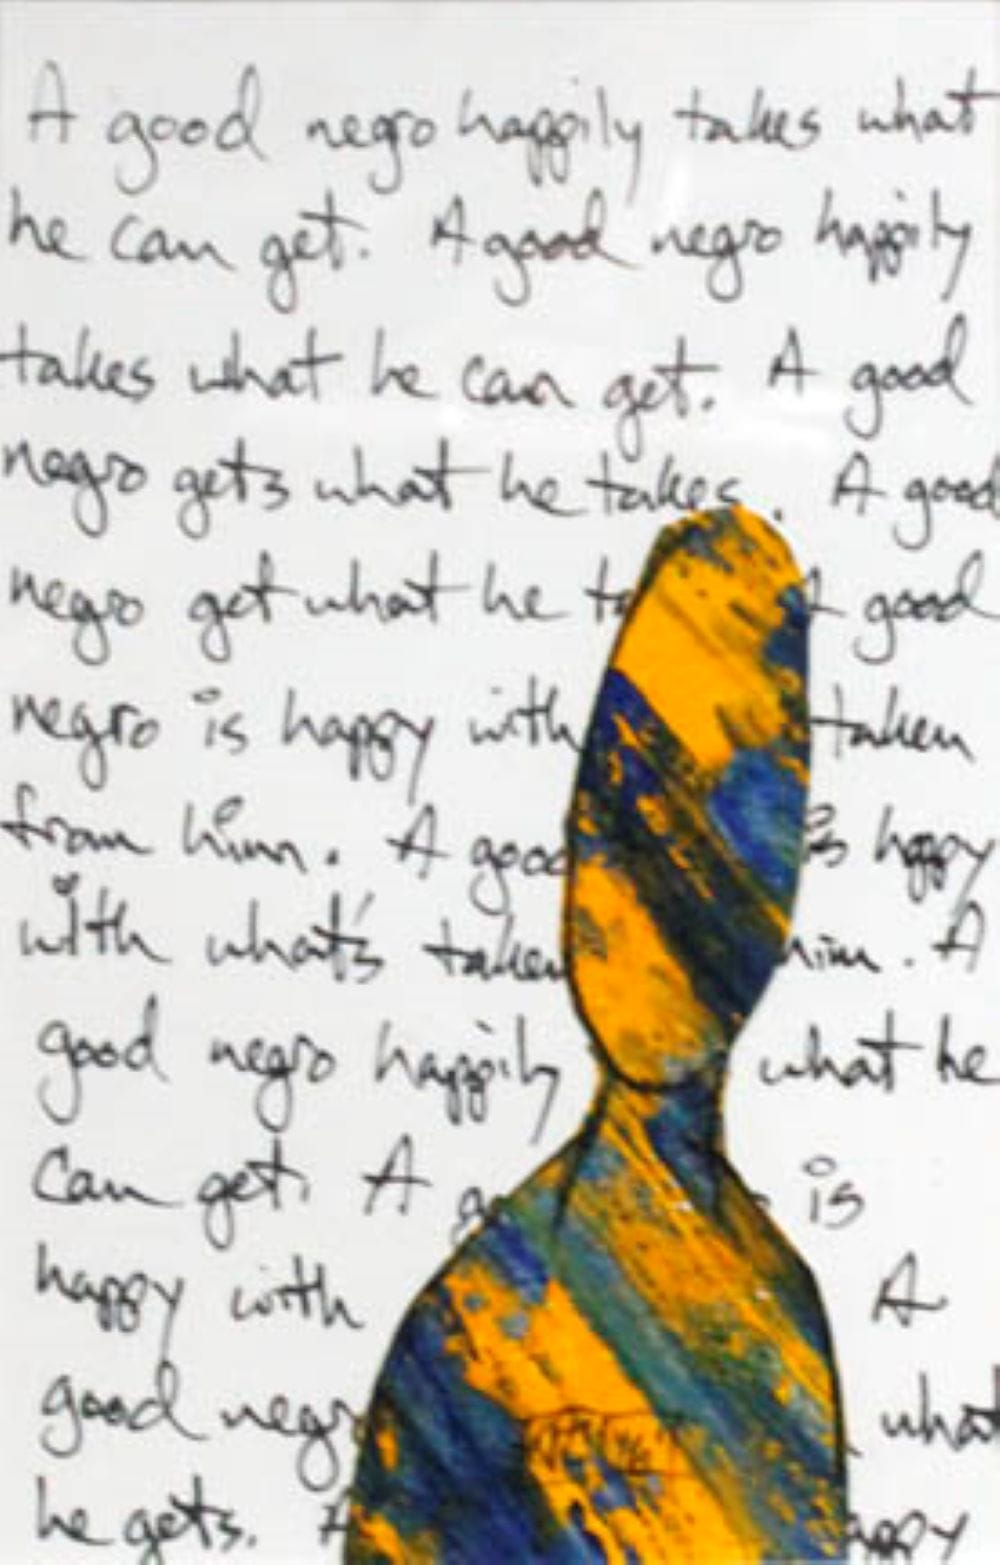 A good negro happily takes what
he can get. A good negro happily
takes what he can get. A good
negro gets what he takes. A good
negro get what he A good
negro is happy with taken
from him. A good is happy
with what's taken him. A
good negro happily what he
can get. A is
happy with A
good negro what
he gets. A happy